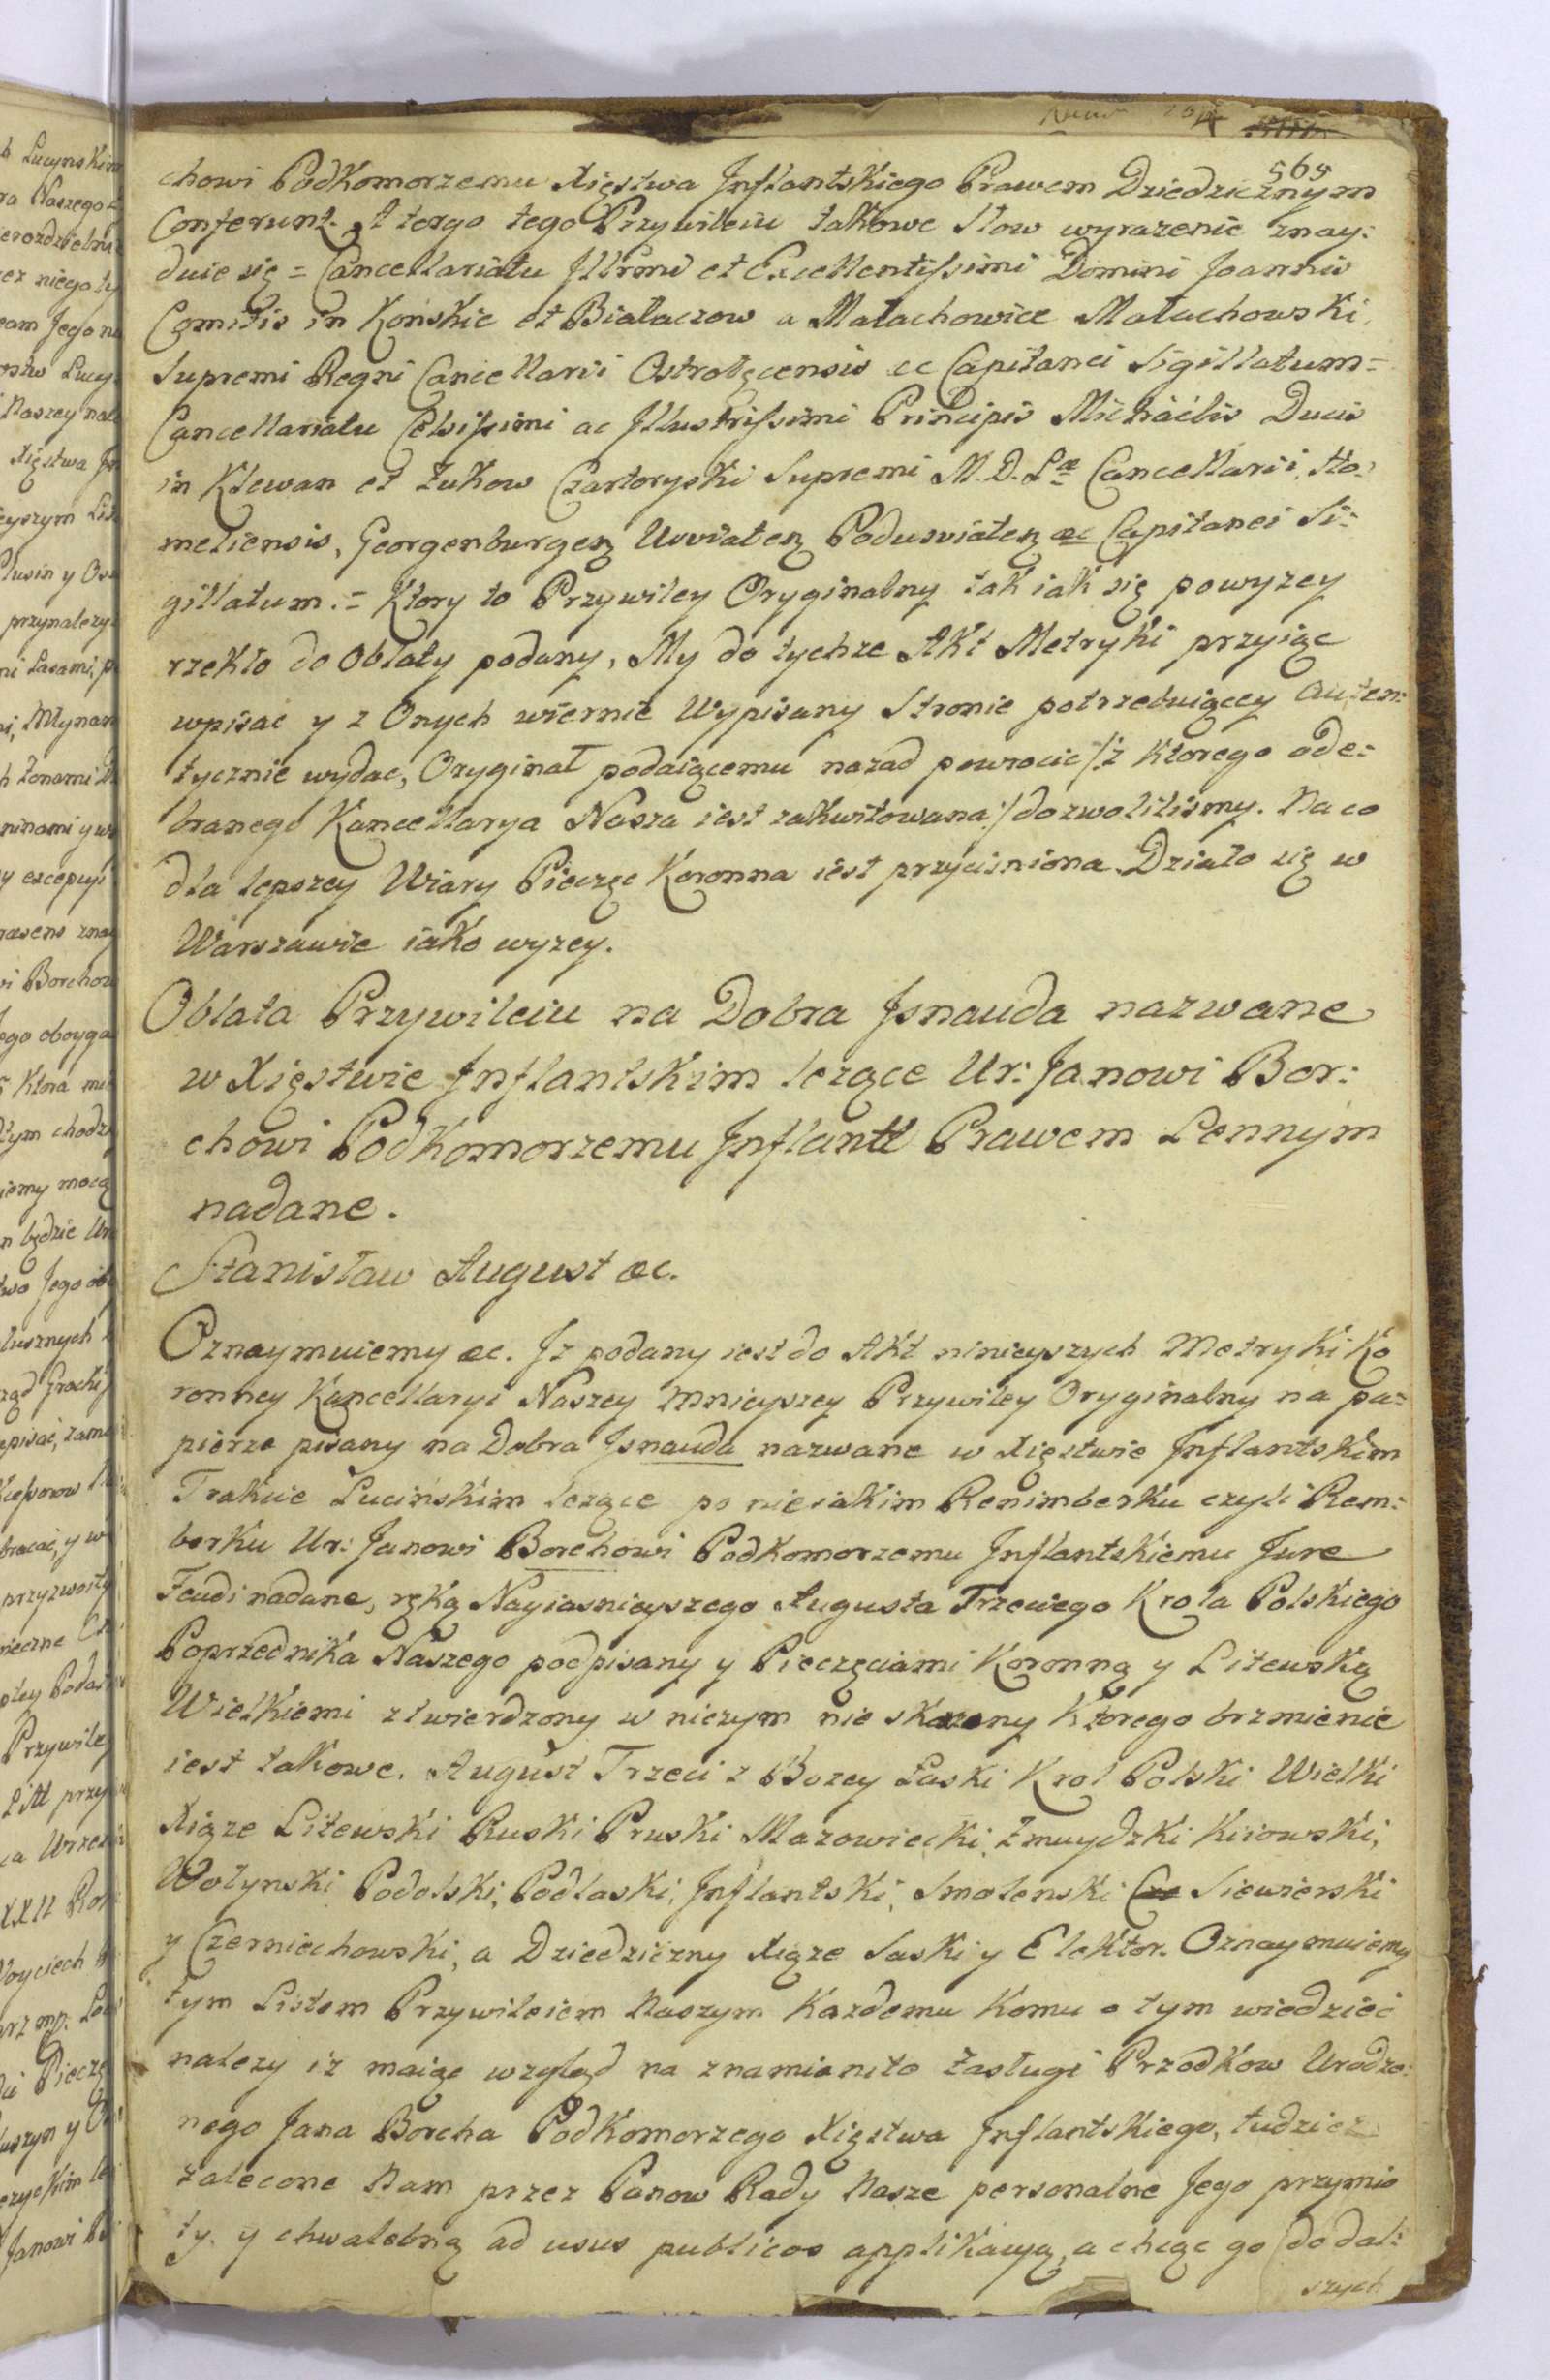 569
chowi Podkomorzemu Xięstwa Jnflantskiego Prawem Dziedzicznym
Conferunt. A tergo tego Przywileiu takowe Słow wyrazenie znay:
duie się = Cancellariatu Jllrmi et Excellentissimi Domini Joannis
Comitis in Końskie et Białaczow a Małachowice Małachowski
Supremi Regni Cancellarii Ostrołęcensis ec Capitanei Sigillatum =
Cancellariatu Celsissimi ac Jllustrissimi Principis Michaelis Ducis
in Klewan et Zukow Czartoryski Supremi M. D. Læ Cancellarii, Ho:
meliensis, Georgenburgen Usviaten Podusviaten æc Capitanei Si:
gillatum. = Ktory to Przywiley Oryginalny tak iak się powyzey
rzekło do Oblaty podany, My do tychze Akt Metryki przyiąc
wpisac y z Onych wiernie Wypisany Stronie potrzebuiącey auten:
tycznie wydac, Oryginał podaiącemu nazad powrocic /:z ktorego ode:
branego Kancellarya Nasza iest zakwitowana:/ dozwolilismy. Na co
dla lepszey Wiary Pieczęc Koronna iest przycisniona. Działo się w
Warszawie iako wyzey.
Oblata Przywileiu na Dobra Jsnauda nazwane
w Xięstwie Jnflantskim lezące Ur: Janowi Bor:
chowi Podkomorzemu Jnflantt Prawem Lennym
nadane.
Stanisław August æc.
Oznaymuiemy æc. Jz podany iest do Akt ninieyszych Metryki Ko
ronney Kancellaryi Naszey Mnieyszey Przywiley Oryginalny na pa:
pierze pisany na Dobra Jsnauda nazwane w Xięstwie Jnflantskim
Trakcie Lucińskim lezące po nieiakim Renimberku czyli Rem:
berku Ur: Janowi Borchowi Podkomorzemu Jnflantskiemu Jure
Feudi nadane, ręką Nayiasnieyszego Augusta Trzeciego Krola Polskiego
Poprzednika Naszego podpisany y Pieczęciami Koronną y Litewską
Wielkiemi ztwierdzony w niczym nie skazony Ktorego brzmienie
iest takowe. August Trzeci z Bozey Łaski Krol Polski Wielki
Xiąze Litewski Ruski Pruski Mazowiecki, Zmuydzki Kiiowski,
Wołynski Podolski, Podlaski, Jnflantski, Smolenski Cze Siewierski
y Czerniechowski, a Dziedziczny Xiąze Saski y Elektor. Oznaymuiemy
tym Listem Przywileiem Naszym Kazdemu Komu o tym wiedziec
nalezy iz maiąc wzgląd na znamienite Zasługi Przodkow Urodzo:
nego Jana Borcha Podkomorzego Xięstwa Jnflantskiego, tudziez
zalecone Nam przez Panow Rady Nasze personalne Jego przymio
ty, y chwalebną ad usus publicos applikacyą, a chcąc go do dal:
szych